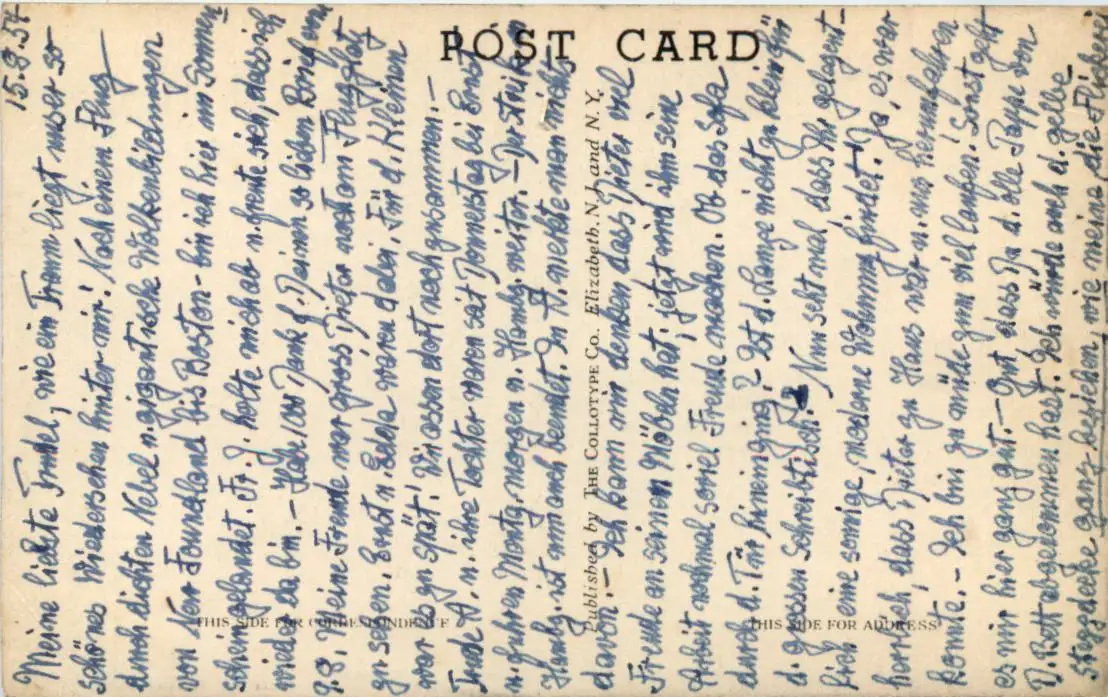 POST CARD
15.8.54
Meine liebste Trudel, wie ein Traum liegt unser so
schönes Wiedersehen hinter mir! Nach einem Flug
durch dichten Nebel u. gigantische Wolkenbildungen
von New Foundland bis Boston - bin ich hier im Sonnen-
schein gelandet. Fr. J. holte mich ab u. freute sich, dass ich
wieder da bin. - Habe 1000 Dank f. Deinen so lieben Brief vom
9.8. Meine Freude war gross, Dieter noch am Flugplatz
zu sehen. Ernst u. Edela waren dabei. Für d. Kleinen
war es zu spät! Wir assen dort noch zusammen. -
Trude A. u. ihre Tochter waren seit Donnerstag bei Ernst
u. fuhren Montg. morgen n. Hambg. weiter. - Der Streik in
Hambg. ist nun auch beendet. In A. merkte man nichts
davon. - Ich kann mir denken dass Dieter viel
Freude an seinen Möbeln hat; jetzt wird ihm seine
Arbeit nochmal soviel Freude machen. Ob das Sofa
durch d. Tür hineinging? Ist d. Lampe nicht zu klein für
d. grossen Schreibtisch? Nun seht mal, dass Ihr gelegent-
lich eine sonnige, moderne Wohnung findet! Ja, es war
herrlich, dass Dieter zu Haus war u. uns herumfahren
konnte. - Ich bin zu müde zum viel laufen! Sonst geht
es mir hier ganz gut. - Gut dass Du d. olle Pappe von
D. Bett abgenommen hast. Ich würde auch d. gelbe
Steppdecke ganz beziehen, wie meine die
THIS SIDE FOR CORRESPONDENCE
Published by THE COLLOTYPE Co., Elizabeth, N. J. and N. Y.
THIS SIDE FOR ADDRESS